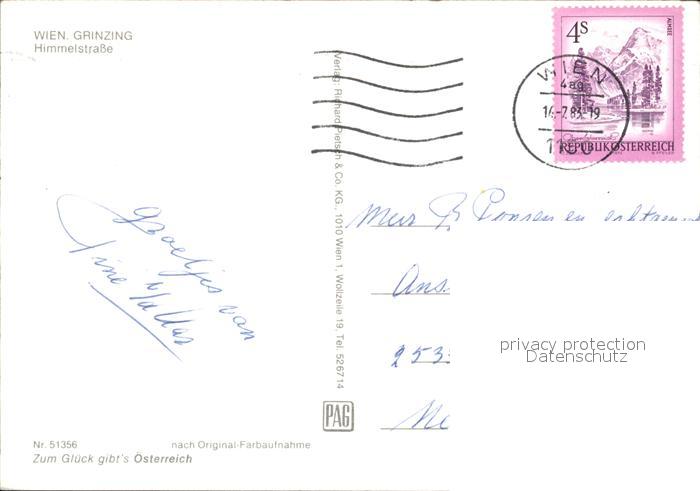 WIEN. GRINZING
Himmelstraße
4S
ALMSEE
WIEN
14.-7.83.-19
1180
REPUBLIK ÖSTERREICH
Verlag: Richard Pietsch & Co. KG., 1010 Wien 1, Wollzeile 19, Tel. 526714
Groetjes van
Tine
Ponsen en
Ans
253
privacy protection
Datenschutz
PAG
Nr. 51356 nach Original-Farbaufnahme
Zum Glück gibt's Österreich